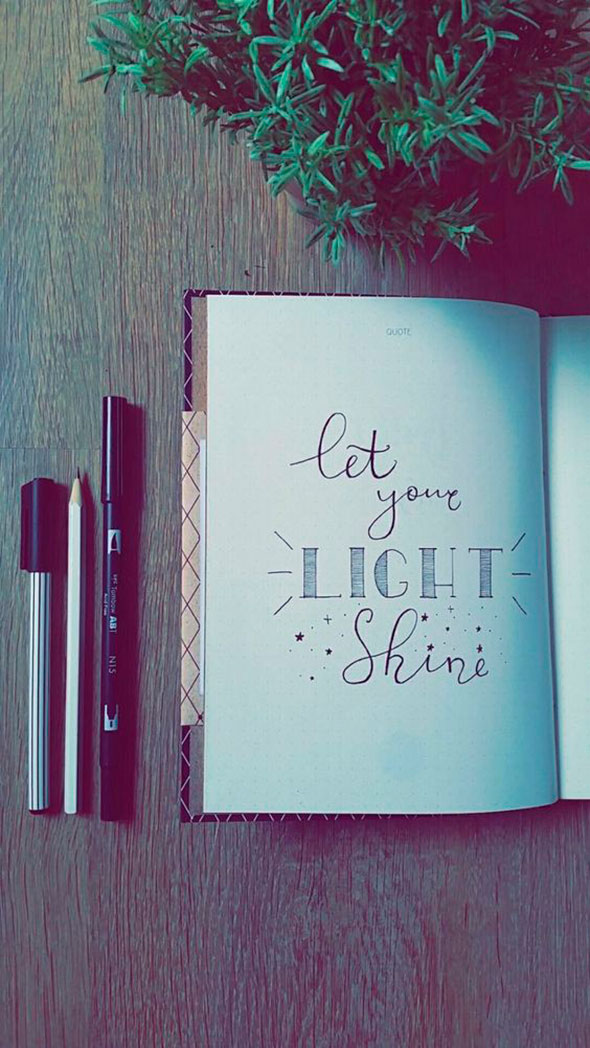 QUOTE
let
your
LIGHT
Shine
ABT
N15